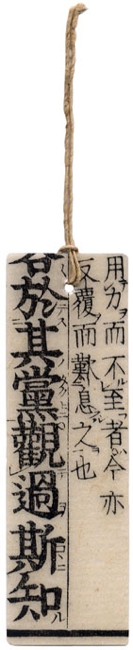 用力而不至者今亦
反覆而歎息之也
各於其黨觀過斯知